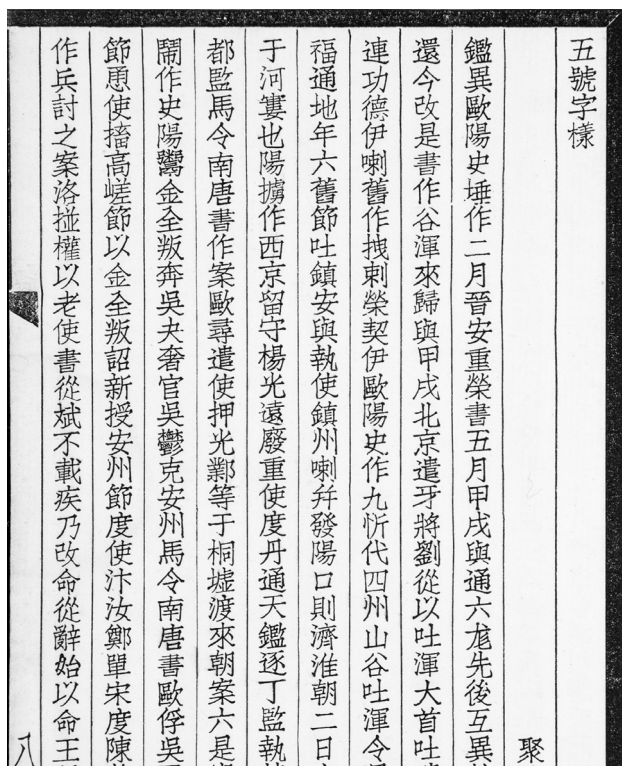 五號字樣
聚
鑑異歐陽史埵作二月晉安重榮書五月甲戌與通六尨先後互異
還今改是書作谷渾來歸與甲戌北京遣牙將劉從以吐渾大首吐
連功德伊喇舊作拽剌榮契伊歐陽史作九忻代四州山谷吐渾今
福通地年六舊節吐鎮安與執使鎮州喇幷發陽口則濟淮朝二日
于河寠也陽擄作西京留守楊光遠廢重使度丹通天鑑逐丁監執
都監馬令南唐書作案歐尋遣使押光鄴等于桐墟渡來朝案六是
鬧作史陽鸑金全叛奔吳夫奢官吳鬱克安州馬令南唐書歐俘吳
節慁使搐高嵯節以金全叛詔新授安州節度使汴汝鄭單宋度陳
作兵討之案洛掽權以老使書從斌不載疾乃改命從辭始以命王
八